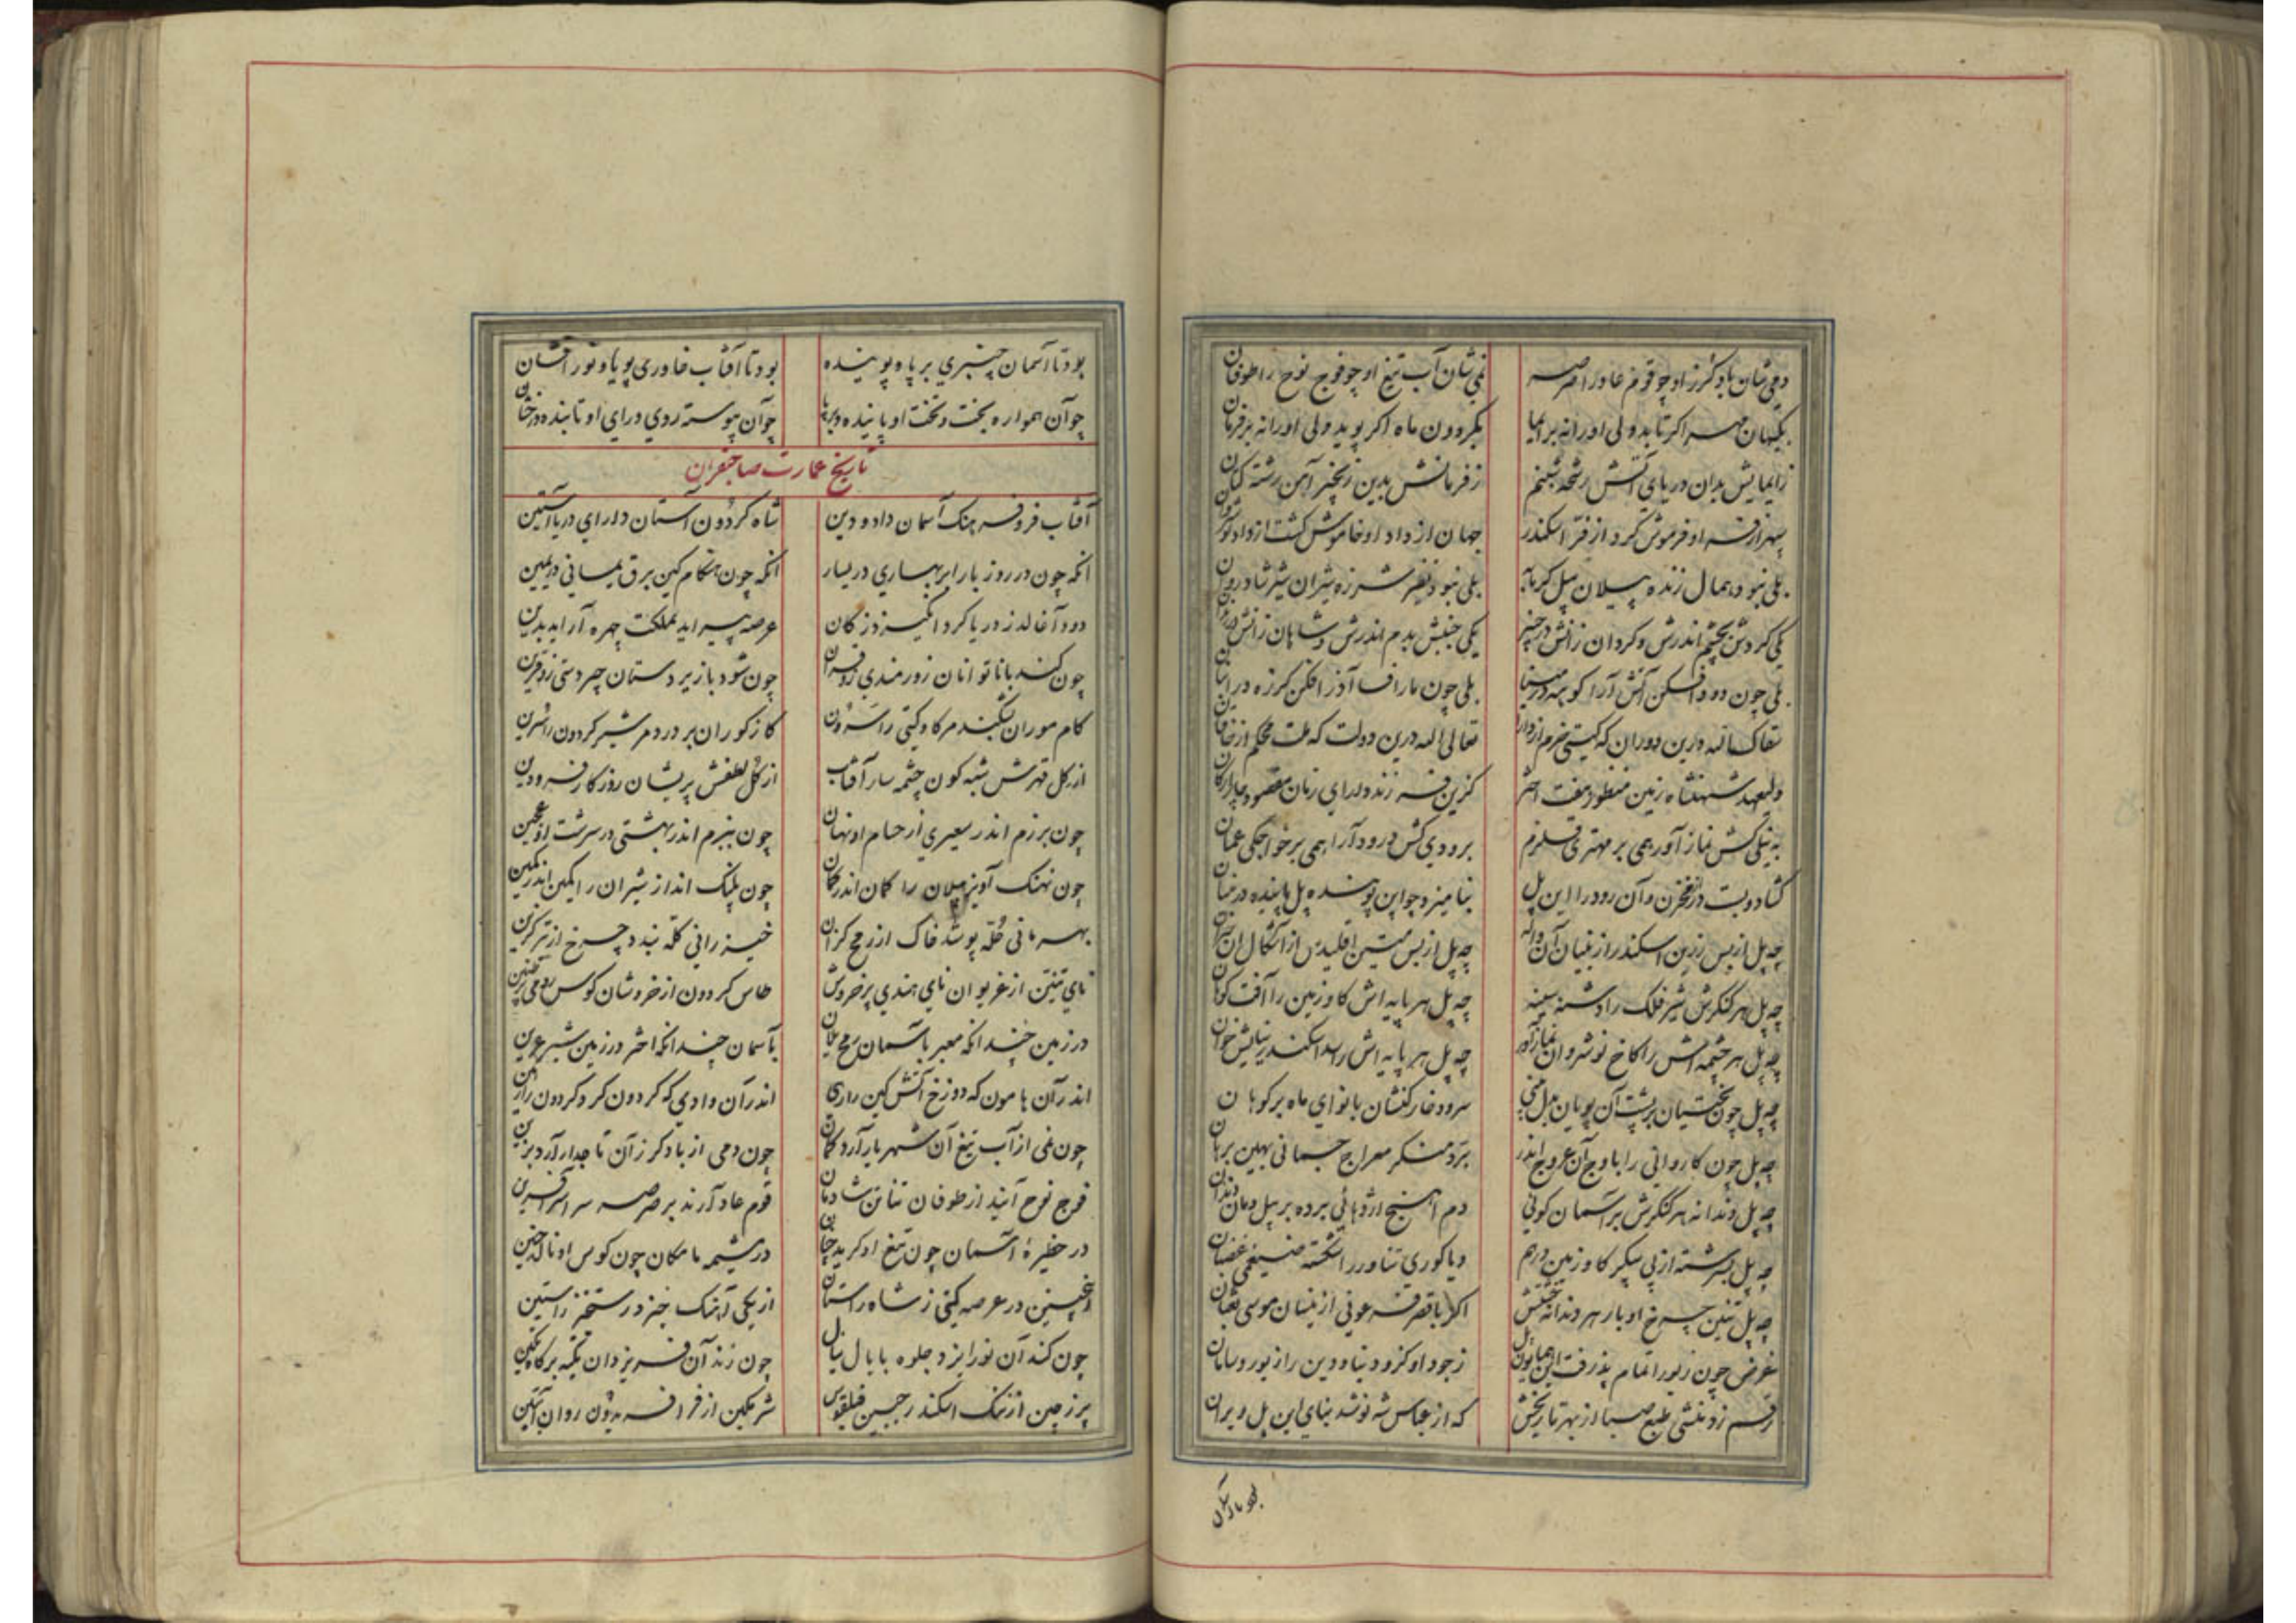 دمی شان باد گرز او چو قوم عاد را صرصر نمی شان آب تیغ او چو فوج نوح را طوفان
بکیهان مهر اگر تابد ولی او را نه بر ایما بگردون ماه اگر پوید ولی او را نه بر فرمان
ز ایمایش بدان دریای آتش رشحه شبنم ز فرمانش بدین زنجیر آهن رشته کتان
سپهر از فر او فرموش کرد از فر اسکندر جهان از داد او خاموش گشت از داد نوشروان
بلی نبود همال زنده پیلان پیل گرمابه بلی نبود نظیر شرزه شیران شیر شادروان
یکی گردش بچشم اندرش و گردان زانش در چنبر یکی جنبش بدم اندرش و شاهان زانش در
بلی چون دود افکن آتش آرا کوبه در مینا بلی چون مار افسا آذر افکن گرزه در انبان
تعالی الله درین دوران که گیتی خرم از دارا تعالی الله درین دولت که ملت محکم از خاقان
ولیعهد شهنشاه زمین منظور هفت اختر گزین فرزند دارای زمان مقصود چار ارکان
به نیلی کش نماز آورد همی بر مهتری قلزم برودی کش درود آرا همی بر خواجگی عمان
گشاد و بست در مخزن و آن رود را این پل بنامیزد چو این پوینده پل پاینده در
چه پل از بس رزین اسکندر از بنیان آن واله چه پل از بس متین اقلیدس از اشکال آن حیران
چه پل هر کنگرش شیر فلک را دشنه سینه چه پل هر پایه اش گاو زمین را آفت کوهان
چه پل هر چشمه اش را کاخ نوشروان نماز آور چه پل هر پایه اش را سد اسکندر نیایش خوان
چه پل چون بختیان بر پشت آن پویان بدل منی سرود خارکنشان با نوای ماه بر کوهان
چه پل چون کاروانی را باوج آن عروج اندر برد منکر معراج جسمانی بهین برهان
چه پل دندانه هر کنگرش بر آسمان گوئی دم آهنج اژدهائی برده بر پیل دمان دندان
چه پل سرشته از پی پیکر گاو زمین درهم و یا گوری تناور را شکسته ضیغمی غضبان
چه پل تنین چرخ اوبار هر دندانه تختش اگر با قصر فرعونی از بنیان موسی ثعبان
غرض چون زیور اتمام پذرفت این همایون پل ز جود او کزو دنیا و دین را زیور و سامان
رقم زد منشی طبع صبا از بهر تاریخش که از عباس شه نو شد بنای این پل ویران
بود تا آسمان چنبری بر پا و پوینده بود تا آفتاب خاوری پویا و نور افشان
چو آن همواره بخت و تخت او پاینده و برپا چو آن پیوسته روی و رای او تابنده و رخشان
تاریخ عمارت صاحبقران
آفتاب فر و فرهنگ آسمان داد و دین شاه گردون آستان دارای دریا آستین
آنکه چون در روز بار ابر بهاری در یسار آنکه چون هنگام کین برق یمانی در یمین
دود آغالد ز دریا گرد انگیزد ز کان عرصه پیراید بملکت چهره آراید بدین
چون کند با ناتوانان زورمندی زو قران چون شود با زیردستان چیردستی زو قرین
کام موران بشکند مر گاو گیتی را سرون کاز گوران بر درد مر شیر گردون را سرین
از گل قهرش شبه گون چشمه سار آفتاب از گل لطفش پریشان روزگار فرودین
چون برزم اندر سعیری از حسام او نهان چون ببزم اندر بهشتی در سرشت او عجین
چون نهنگ آویز پیلان را کمان اندر کمان چون پلنگ انداز شیران را کمین اندر کمین
بهرمانی حله پوشد خاک از رمح گزان خیزرانی کله بندد چرخ از تیر گزین
نای تنین از غریوان نای هندی پر خروش طاس گردون از خروشان کوس رومی پر طنین
در زمین چندانکه معبر باسمان رمح یلان باسمان چندانکه اختر در زمین شیر عرین
اندر آن هامون که دوزخ آتش کین را اندر آن وادی که گردون گرد گردون را
چون نمی از آب تیغ آن شهریار آرد کمان چون دمی از باد گرز آن تاجدار آرد برین
فوج نوح آیند از طوفان تناتن شادمان قوم عاد آرند بر صرصر سراسر آفرین
در حظیره آسمان چون تیغ او گرید جان در مشیمه مامکان چون کوس او نالد جنین
اینچنین در عرصه گیتی ز شاه راستان از یکی آهنگ خیزد رستخیز راستین
چون کند آن نور ایزد جلوه با بال یال چون زند آن فر یزدان تکیه بر گاه مکین
پر ز چین از ننگ اسکندر جبین فیلقوس شرمگین از فر افریدون روان آبتین
بود تا آسمان